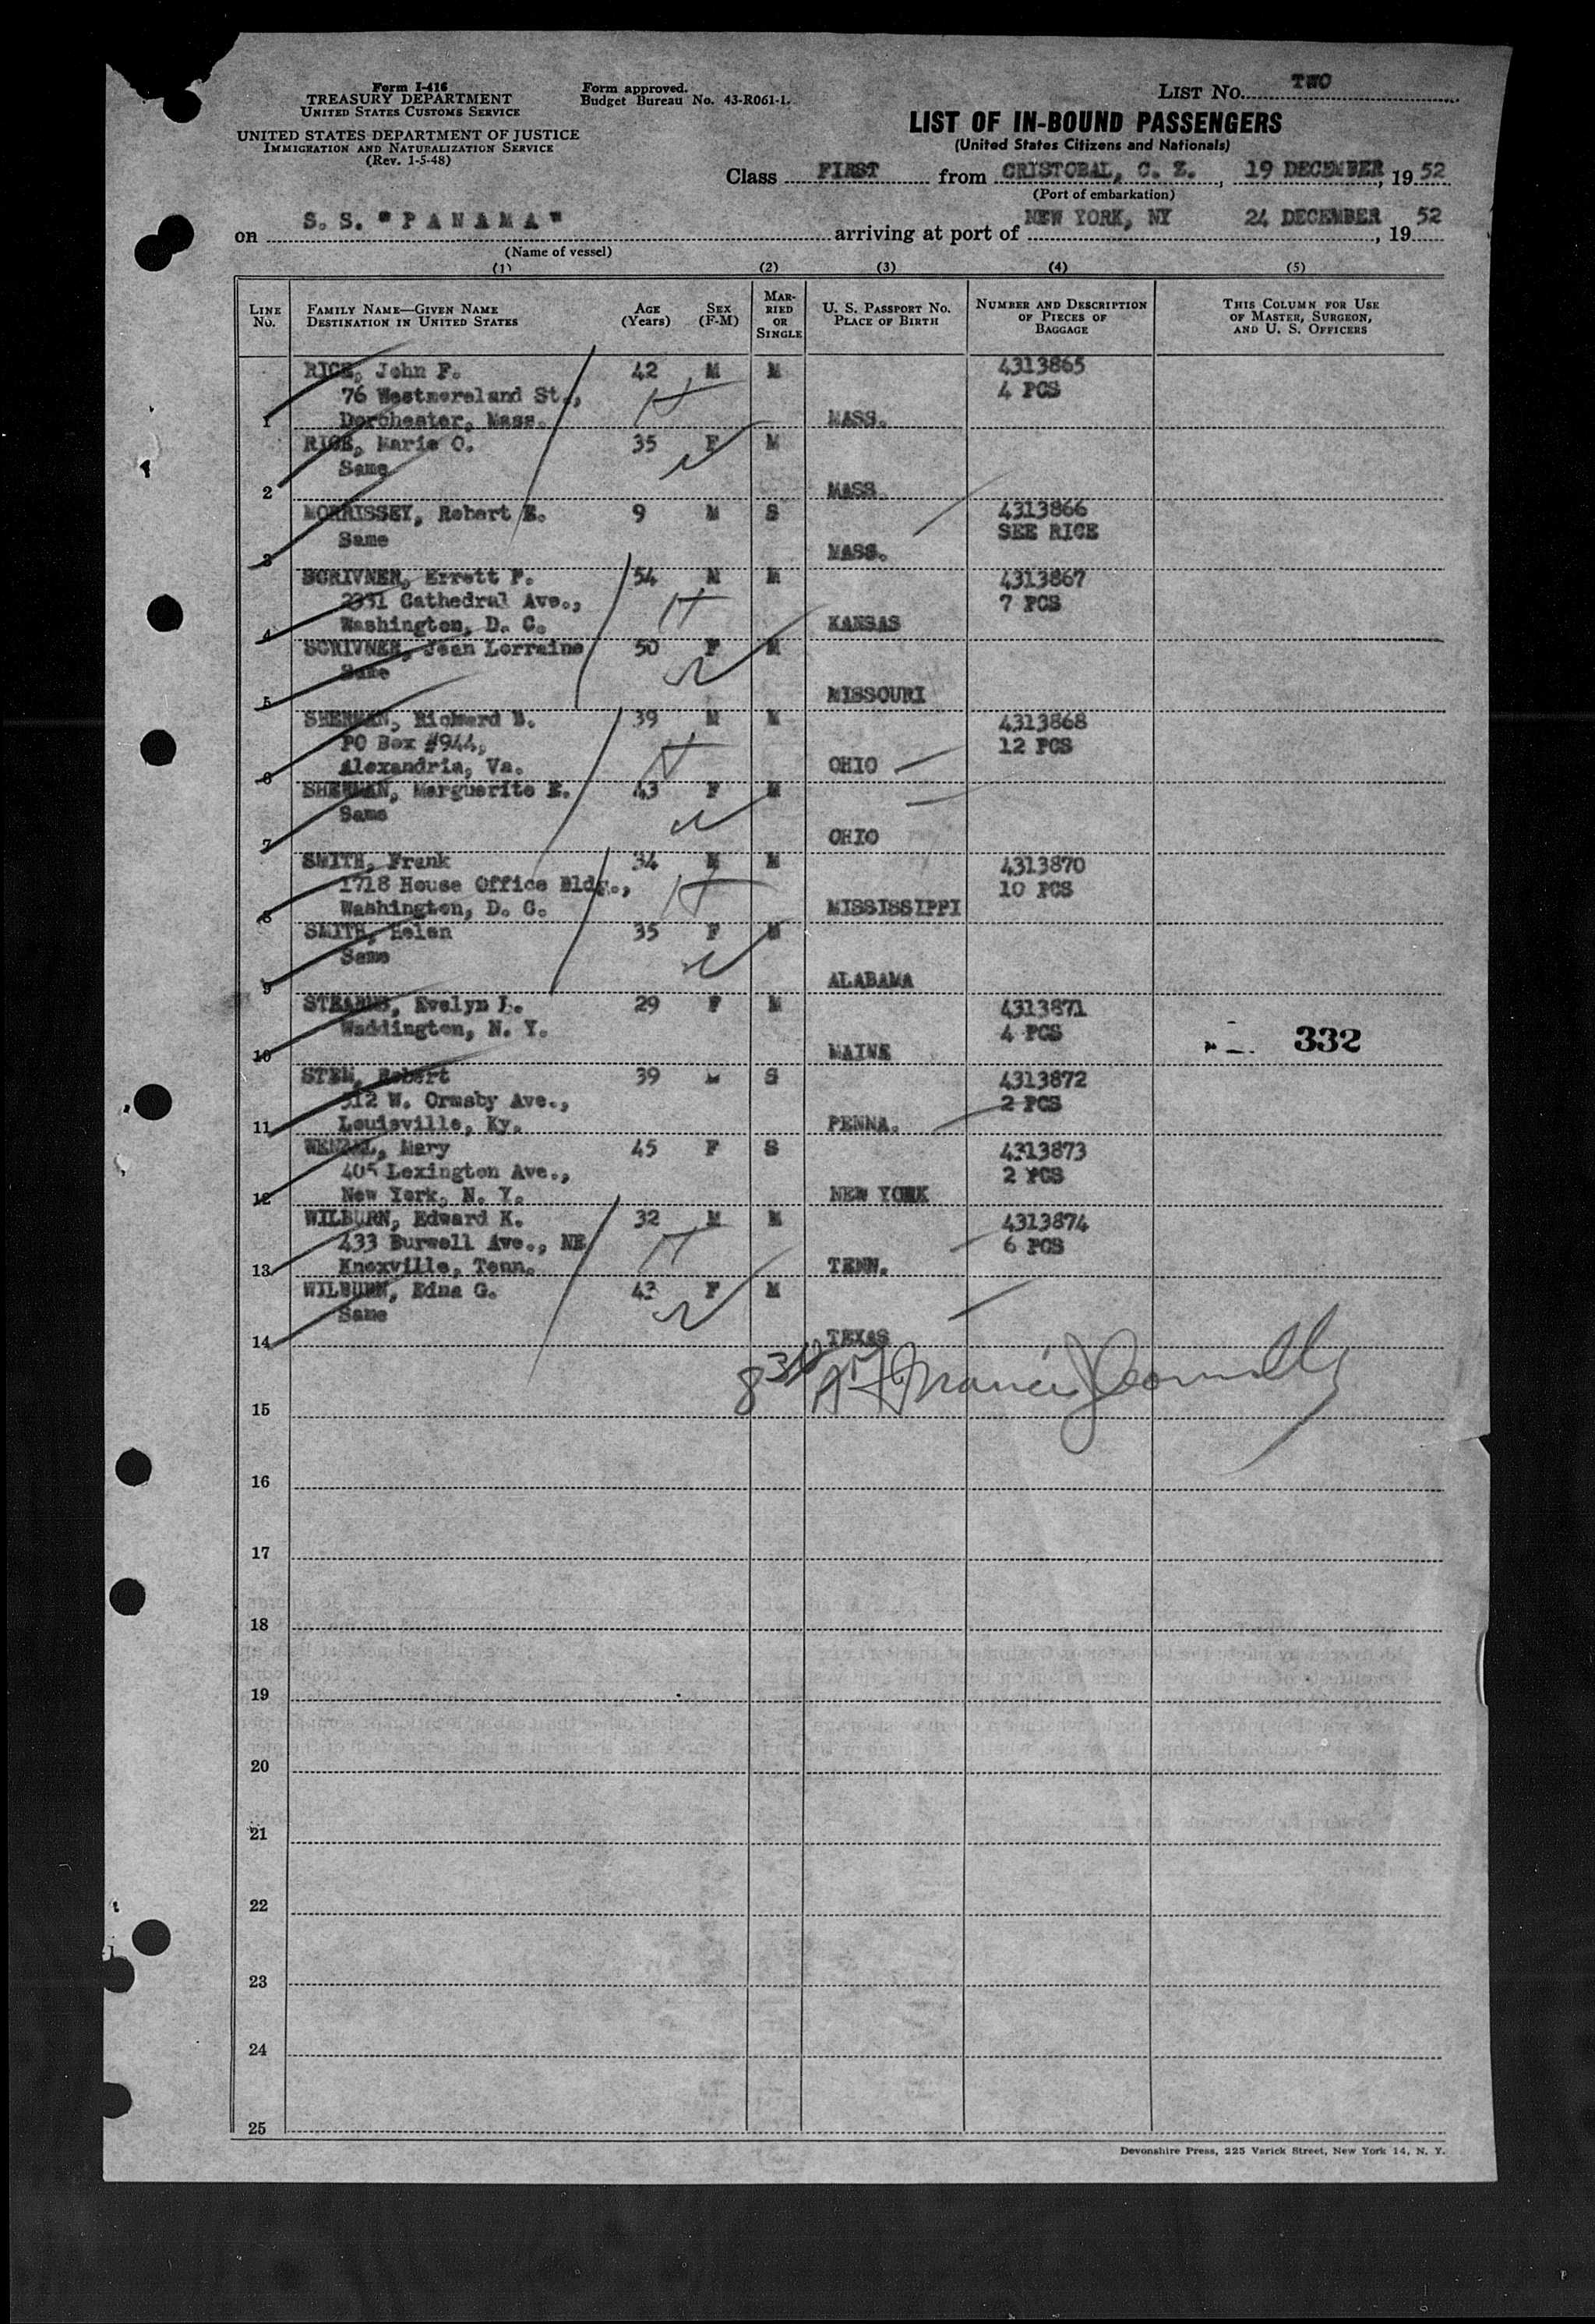 Form I-416
TREASURY DEPARTMENT
UNITED STATES CUSTOMS SERVICE
UNITED STATES DEPARTMENT OF JUSTICE
IMMIGRATION AND NATURALIZATION SERVICE
(Rev. 1-5-48)
Form approved.
Budget Bureau No. 43-R061-1.
LIST No. TWO
LIST OF IN-BOUND PASSENGERS
(United States Citizens and Nationals)
Class FIRST from CRISTOBAL, C. Z., 19 DECEMBER, 19 52
(Port of embarkation)
on S. S. "PANAMA" arriving at port of NEW YORK, NY 24 DECEMBER, 19 52
(Name of vessel)
(1) (2) (3) (4) (5)
LINE No.
FAMILY NAME—GIVEN NAME
DESTINATION IN UNITED STATES
AGE (Years)
SEX (F-M)
MARRIED OR SINGLE
U. S. PASSPORT NO.
PLACE OF BIRTH
NUMBER AND DESCRIPTION OF PIECES OF BAGGAGE
THIS COLUMN FOR USE OF MASTER, SURGEON, AND U. S. OFFICERS
RICE, John F. 42 M M 4313865
76 Westmoreland St., 4 PCS
1 Dorchester, Mass. MASS.
RICE, Marie C. 35 F M
Same
2 MASS.
MORRISSEY, Robert E. 9 M S 4313866
Same SEE RICE
3 MASS.
SCRIVNER, Errett P. 54 M M 4313867
2331 Cathedral Ave., 7 PCS
4 Washington, D. C. KANSAS
SCRIVNER, Jean Lorraine 50 F M
Same
5 MISSOURI
SHERMAN, Richard B. 39 M M 4313868
PO Box #944, 12 PCS
6 Alexandria, Va. OHIO
SHERMAN, Marguerite E. 43 F M
Same
7 OHIO
SMITH, Frank 34 M M 4313870
1718 House Office Bldg., 10 PCS
8 Washington, D. C. MISSISSIPPI
SMITH, Helen 35 F M
Same
9 ALABAMA
STEARNS, Evelyn L. 29 F M 4313871
Waddington, N. Y. 4 PCS
10 MAINE
332
STEM, Robert 39 M S 4313872
512 W. Ormsby Ave., 2 PCS
11 Louisville, Ky. PENNA.
Mary 45 F S 4313873
405 Lexington Ave., 2 PCS
12 New York, N. Y. NEW YORK
WILBURN, Edward K. 32 M M 4313874
433 Burwell Ave., NE 6 PCS
13 Knoxville, Tenn. TENN.
WILBURN, Edna G. 43 F M
Same
14 TEXAS
Francis J Connolly
15
16
17
18
19
20
21
22
23
24
25
Devonshire Press, 225 Varick Street, New York 14, N. Y.